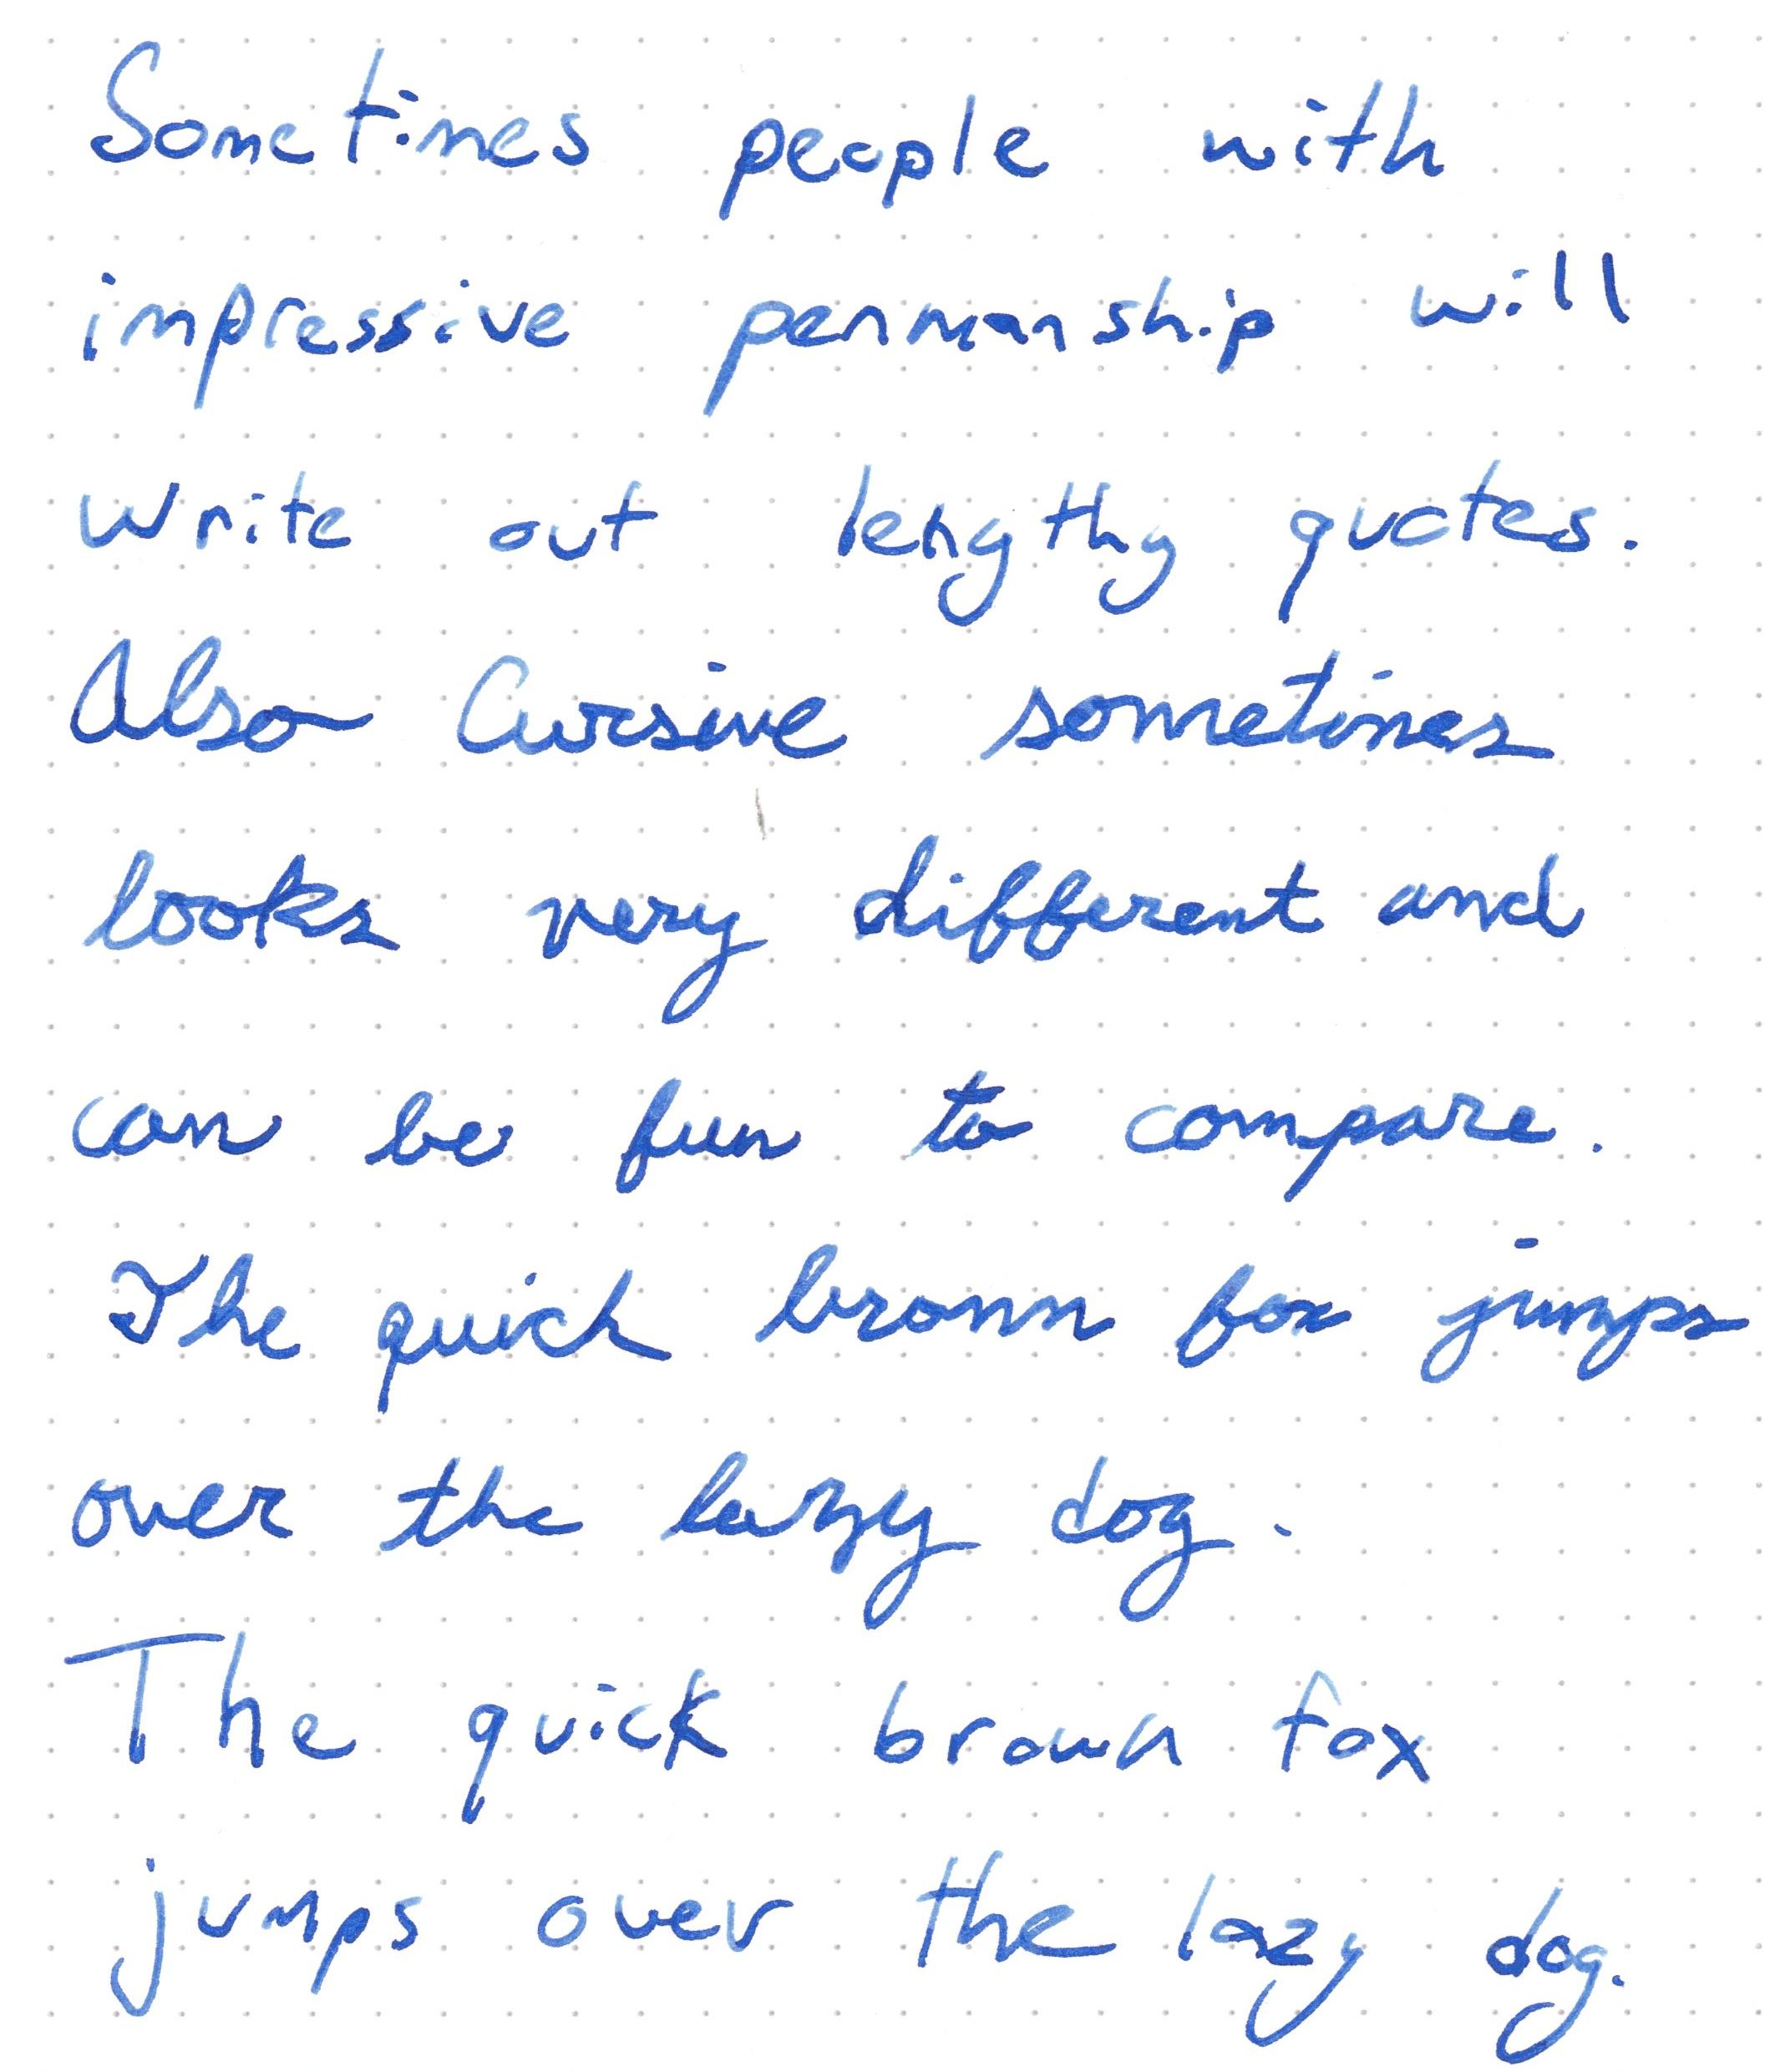 Sometimes people with
impressive penmanship will
write out lengthy quotes.
Also Cursive sometimes
looks very different and
can be fun to compare.
The quick brown fox jumps
over the lazy dog.
The quick brown fox
jumps over the lazy dog.